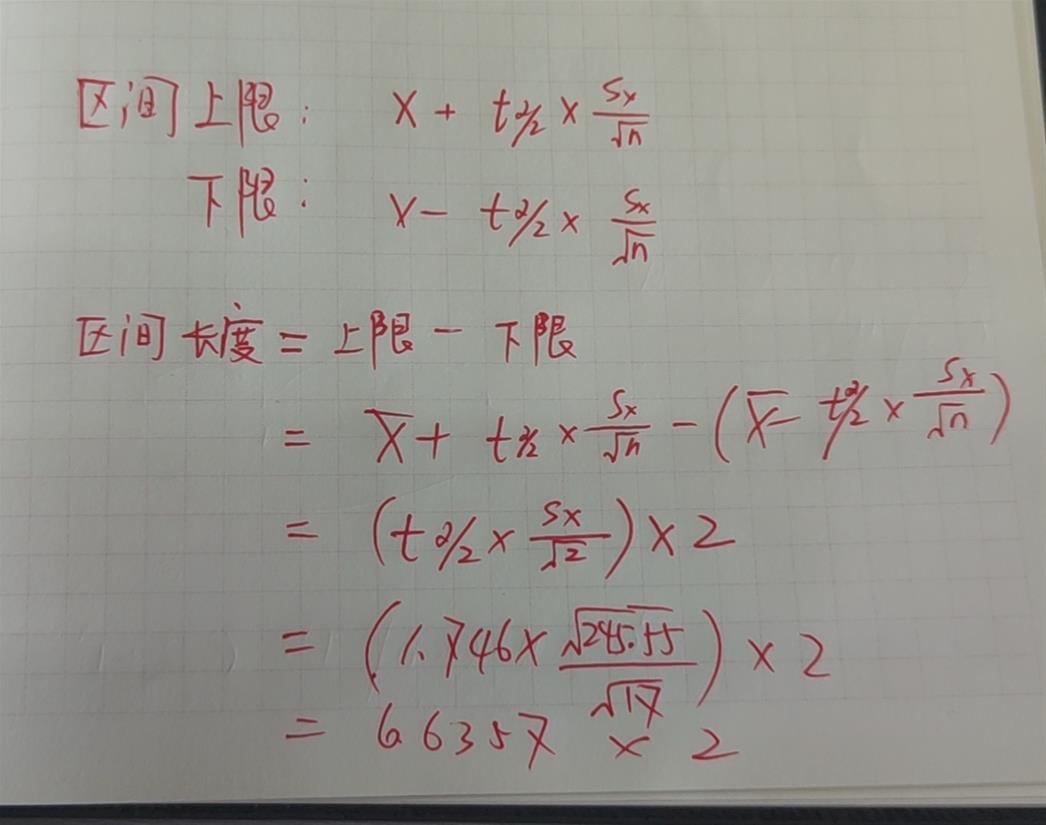 区间上限： X + tα/2 × Sx/√n
下限： X − tα/2 × Sx/√n
区间长度 = 上限 − 下限
= X̅ + tα/2 × Sx/√n − (X̅ − tα/2 × Sx/√n)
= (tα/2 × Sx/√2) × 2
= (1.746 × √245.55/√17) × 2
= 6.6357 × 2